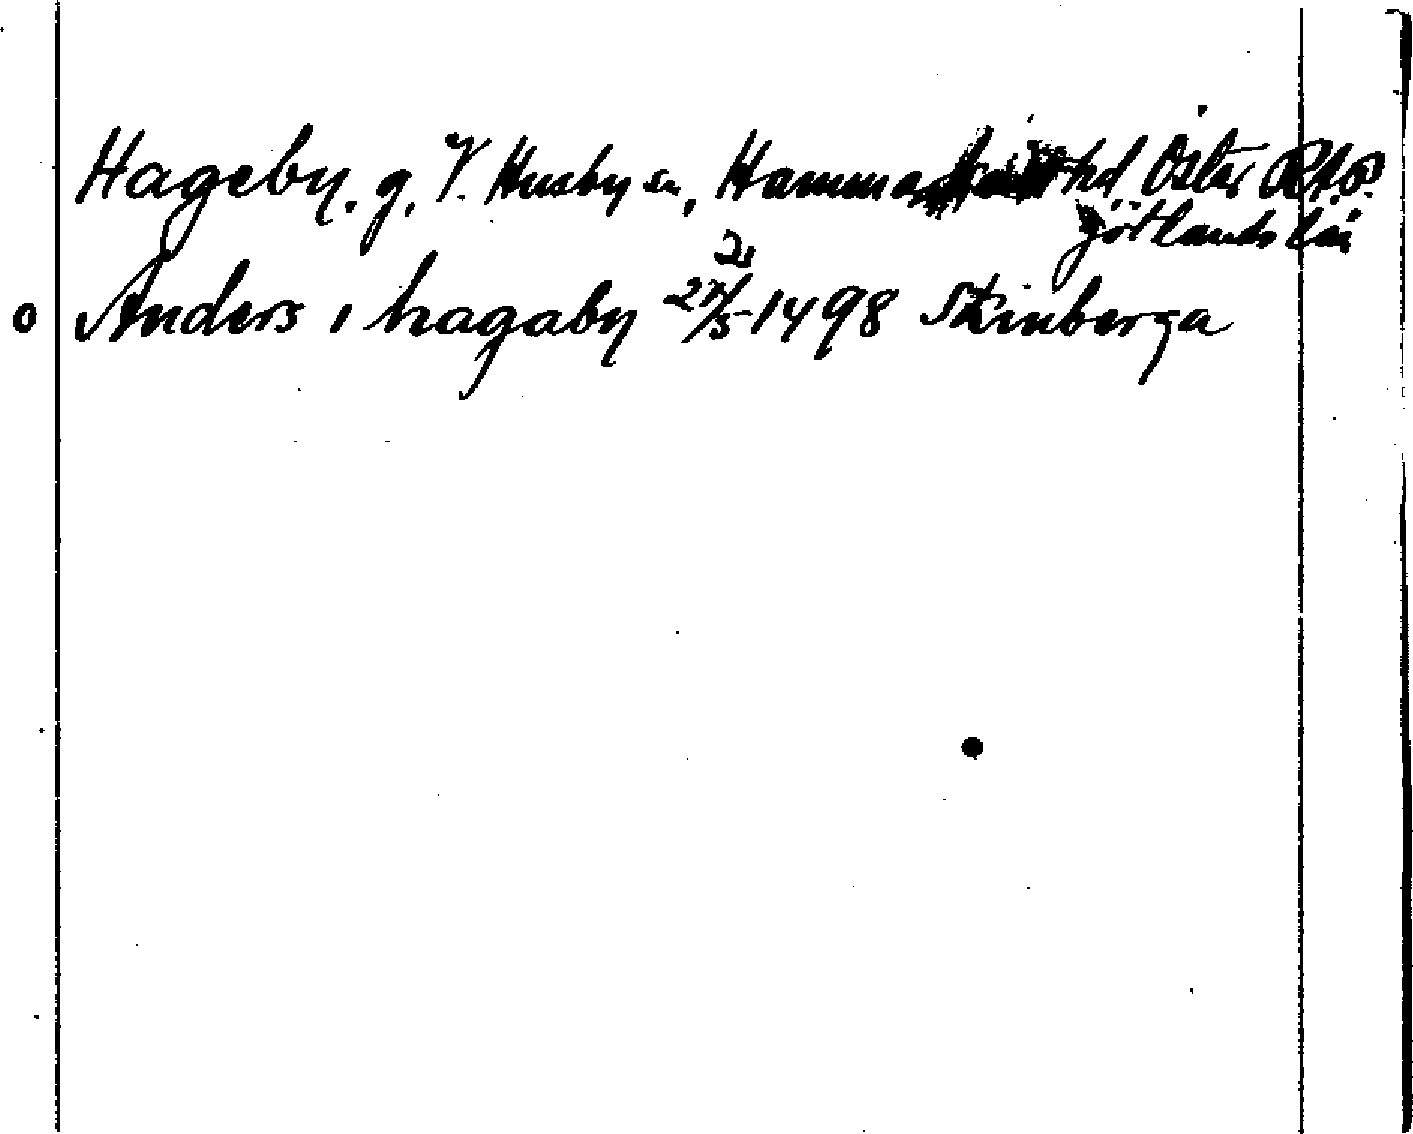 Hageby, g, V. Husby sn, Hammarkinds hd Öster RAp
götlands län
2
o Anders i hagaby 27/5 1498 Skinberga